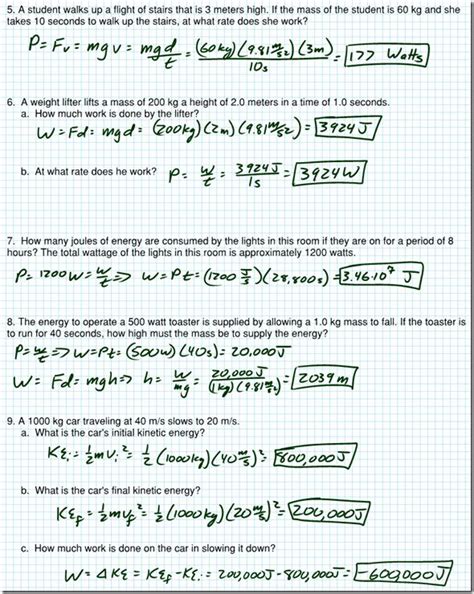 5. A student walks up a flight of stairs that is 3 meters high. If the mass of the student is 60 kg and she
takes 10 seconds to walk up the stairs, at what rate does she work?
P = Fv = mgv = mgd/t = (60kg)(9.81 m/s²)(3m)/10s = 177 Watts
6. A weight lifter lifts a mass of 200 kg a height of 2.0 meters in a time of 1.0 seconds.
a. How much work is done by the lifter?
W = Fd = mgd = (200kg)(2m)(9.81 m/s²) = 3924 J
b. At what rate does he work? P = W/t = 3924J/1s = 3924W
7. How many joules of energy are consumed by the lights in this room if they are on for a period of 8
hours? The total wattage of the lights in this room is approximately 1200 watts.
P = 1200W = W/t => W = Pt = (1200 J/s)(28,800s) = 3.46·10⁷ J
8. The energy to operate a 500 watt toaster is supplied by allowing a 1.0 kg mass to fall. If the toaster is
to run for 40 seconds, how high must the mass be to supply the energy?
P = W/t => W = Pt = (500W)(40s) = 20,000J
W = Fd = mgh => h = W/mg = 20,000J/(1kg)(9.81 m/s²) = 2039m
9. A 1000 kg car traveling at 40 m/s slows to 20 m/s.
a. What is the car's initial kinetic energy?
KEi = ½mvi² = ½(1000kg)(40 m/s)² = 800,000J
b. What is the car's final kinetic energy?
KEf = ½mvf² = ½(1000kg)(20 m/s)² = 200,000J
c. How much work is done on the car in slowing it down?
W = ΔKE = KEf - KEi = 200,000J - 800,000J = -600,000J